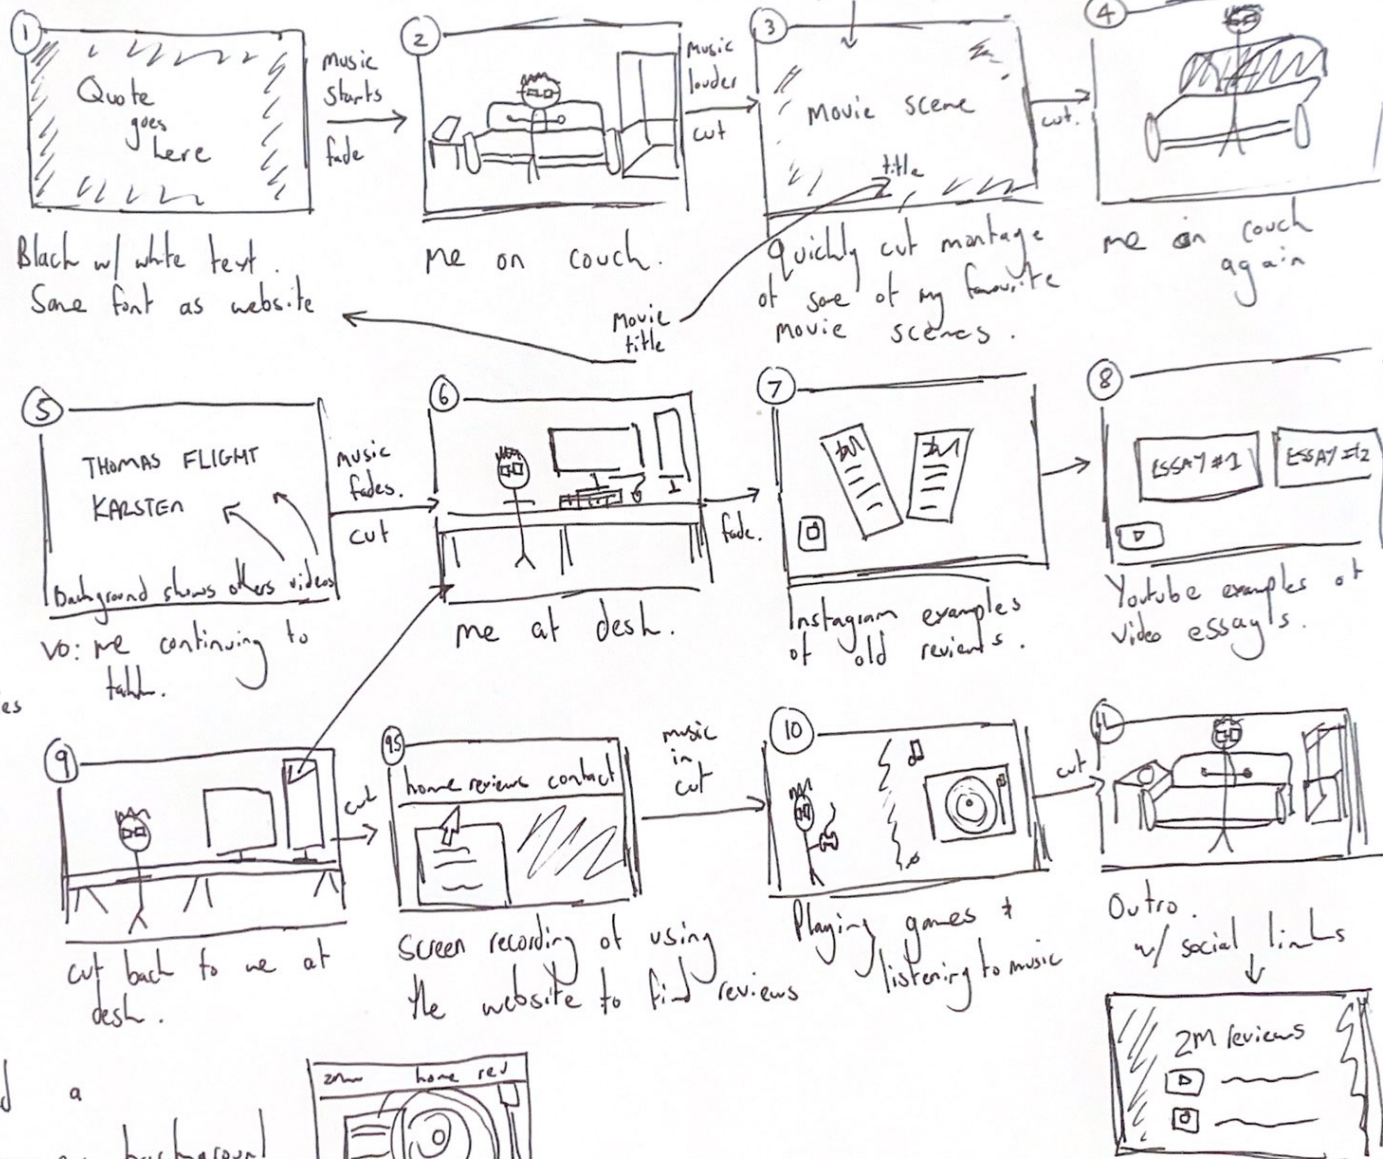 1
Quote
goes
here
Black w/ white text.
Same font as website
Music
starts
fade
2
me on couch.
Music
louder
cut
3
Movie scene
title
Quickly cut montage
of some of my favourite
movie scenes.
Movie
title
cut.
4
me on couch
again
5
THOMAS FLIGHT
KARSTEN
Background shows others videos
VO: me continuing to
talk.
music
fades.
cut
6
me at desk.
fade.
7
Instagram examples
of old reviews.
8
ESSAY #1
ESSAY #2
Youtube examples of
video essays.
es
9
cut back to me at
desk.
cut
9.5
home reviews contact
Screen recording of using
the website to find reviews
music
in
cut
10
Playing games +
listening to music
cut
11
Outro.
w/ social links
2M reviews
a
background
home rev